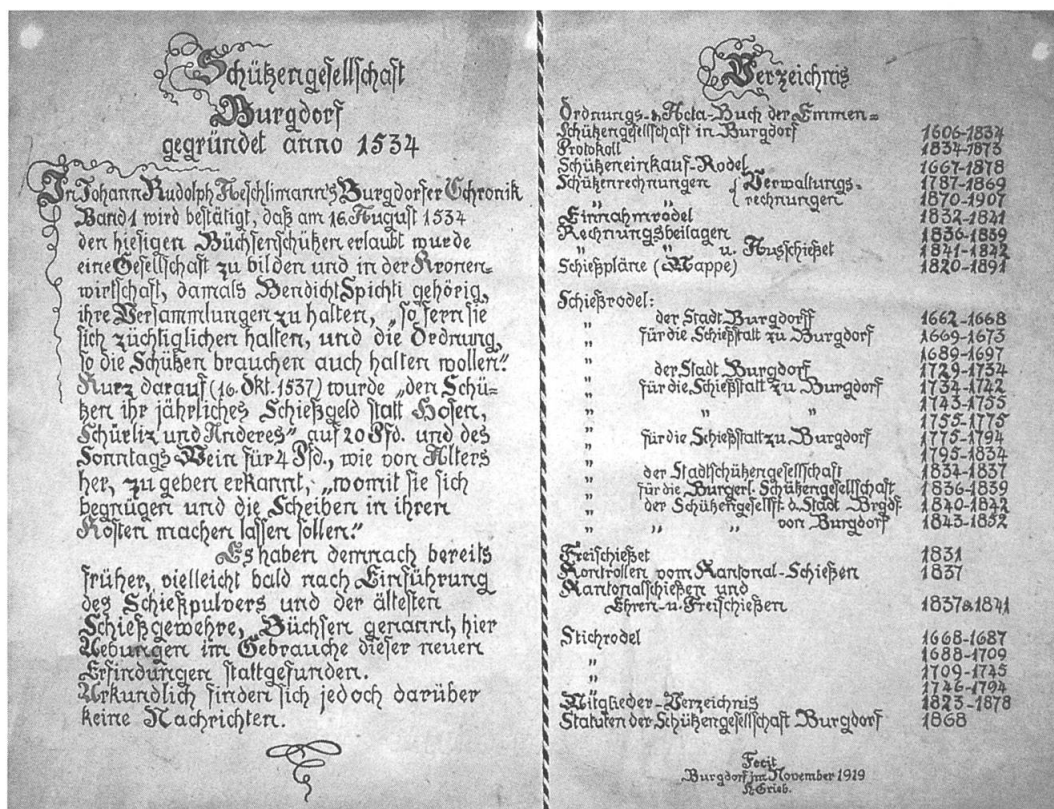 Schützengesellschaft
Burgdorf
gegründet anno 1534
In Johann Rudolph Aeschlimann's Burgdorfer Chronik
Band 1 wird bestätigt, daß am 16. August 1534
den hiesigen Büchsenschützen erlaubt wurde
eine Gesellschaft zu bilden und in der Kronen-
wirtschaft, damals Bendicht Spichti gehörig,
ihre Versammlungen zu halten, „so fern sie
sich züchtiglichen halten, und die Ordnung,
so die Schützen brauchen auch halten wollen."
Kurz darauf (16. Okt. 1537) wurde „den Schü-
tzen ihr jährliches Schießgeld statt Hosen,
Schürliz und Anderes" auf 20 Pfd. und des
Sonntags Wein für 4 Pfd., wie von Alters
her, zu geben erkannt, „womit sie sich
begnügen und die Scheiben in ihren
Kosten machen lassen sollen."
Es haben demnach bereits
früher, vielleicht bald nach Einführung
des Schießpulvers und der ältesten
Schießgewehre, Büchsen genannt, hier
Uebungen im Gebrauche dieser neuen
Erfindungen stattgefunden.
Urkundlich finden sich jedoch darüber
keine Nachrichten.
Verzeichnis
Ordnungs- & Acta-Buch der Emmen=
Schützengesellschaft in Burgdorf 1606-1834
Protokoll 1834-1873
Schützeneinkauf-Rodel 1667-1878
Schützenrechnungen { Verwaltungs- 1787-1869
„ „ { rechnungen 1870-1907
Einnahmrodel 1832-1841
Rechnungsbeilagen 1836-1839
„ u. Ausschießet 1841-1842
Schießpläne (Mappe) 1820-1891
Schießrodel:
„ der Stadt Burgdorff 1662-1668
„ für die Schießstatt zu Burgdorf 1669-1673
1689-1697
„ der Stadt Burgdorf 1729-1734
„ für die Schießstatt zu Burgdorf 1734-1742
1743-1755
„ „ „ 1755-1775
„ für die Schießstatt zu Burgdorf 1775-1794
1795-1834
„ der Stadtschützengesellschaft 1834-1837
„ für die Burgerl. Schützengesellschaft 1836-1839
„ der Schützengesellst. d. Stadt Brgdf. 1840-1842
„ „ „ von Burgdorf 1843-1852
Freischießet 1831
Kontrollen vom Kantonal-Schießen 1837
Kantonalschießen und
Ehren- u. Freischießen 1837 & 1841
Stichrodel 1668-1687
„ 1688-1709
„ 1709-1745
„ 1746-1794
Mitglieder-Verzeichnis 1823-1878
Statuten der Schützengesellschaft Burgdorf 1868
Fecit
Burgdorf im November 1929
H. Grieb.